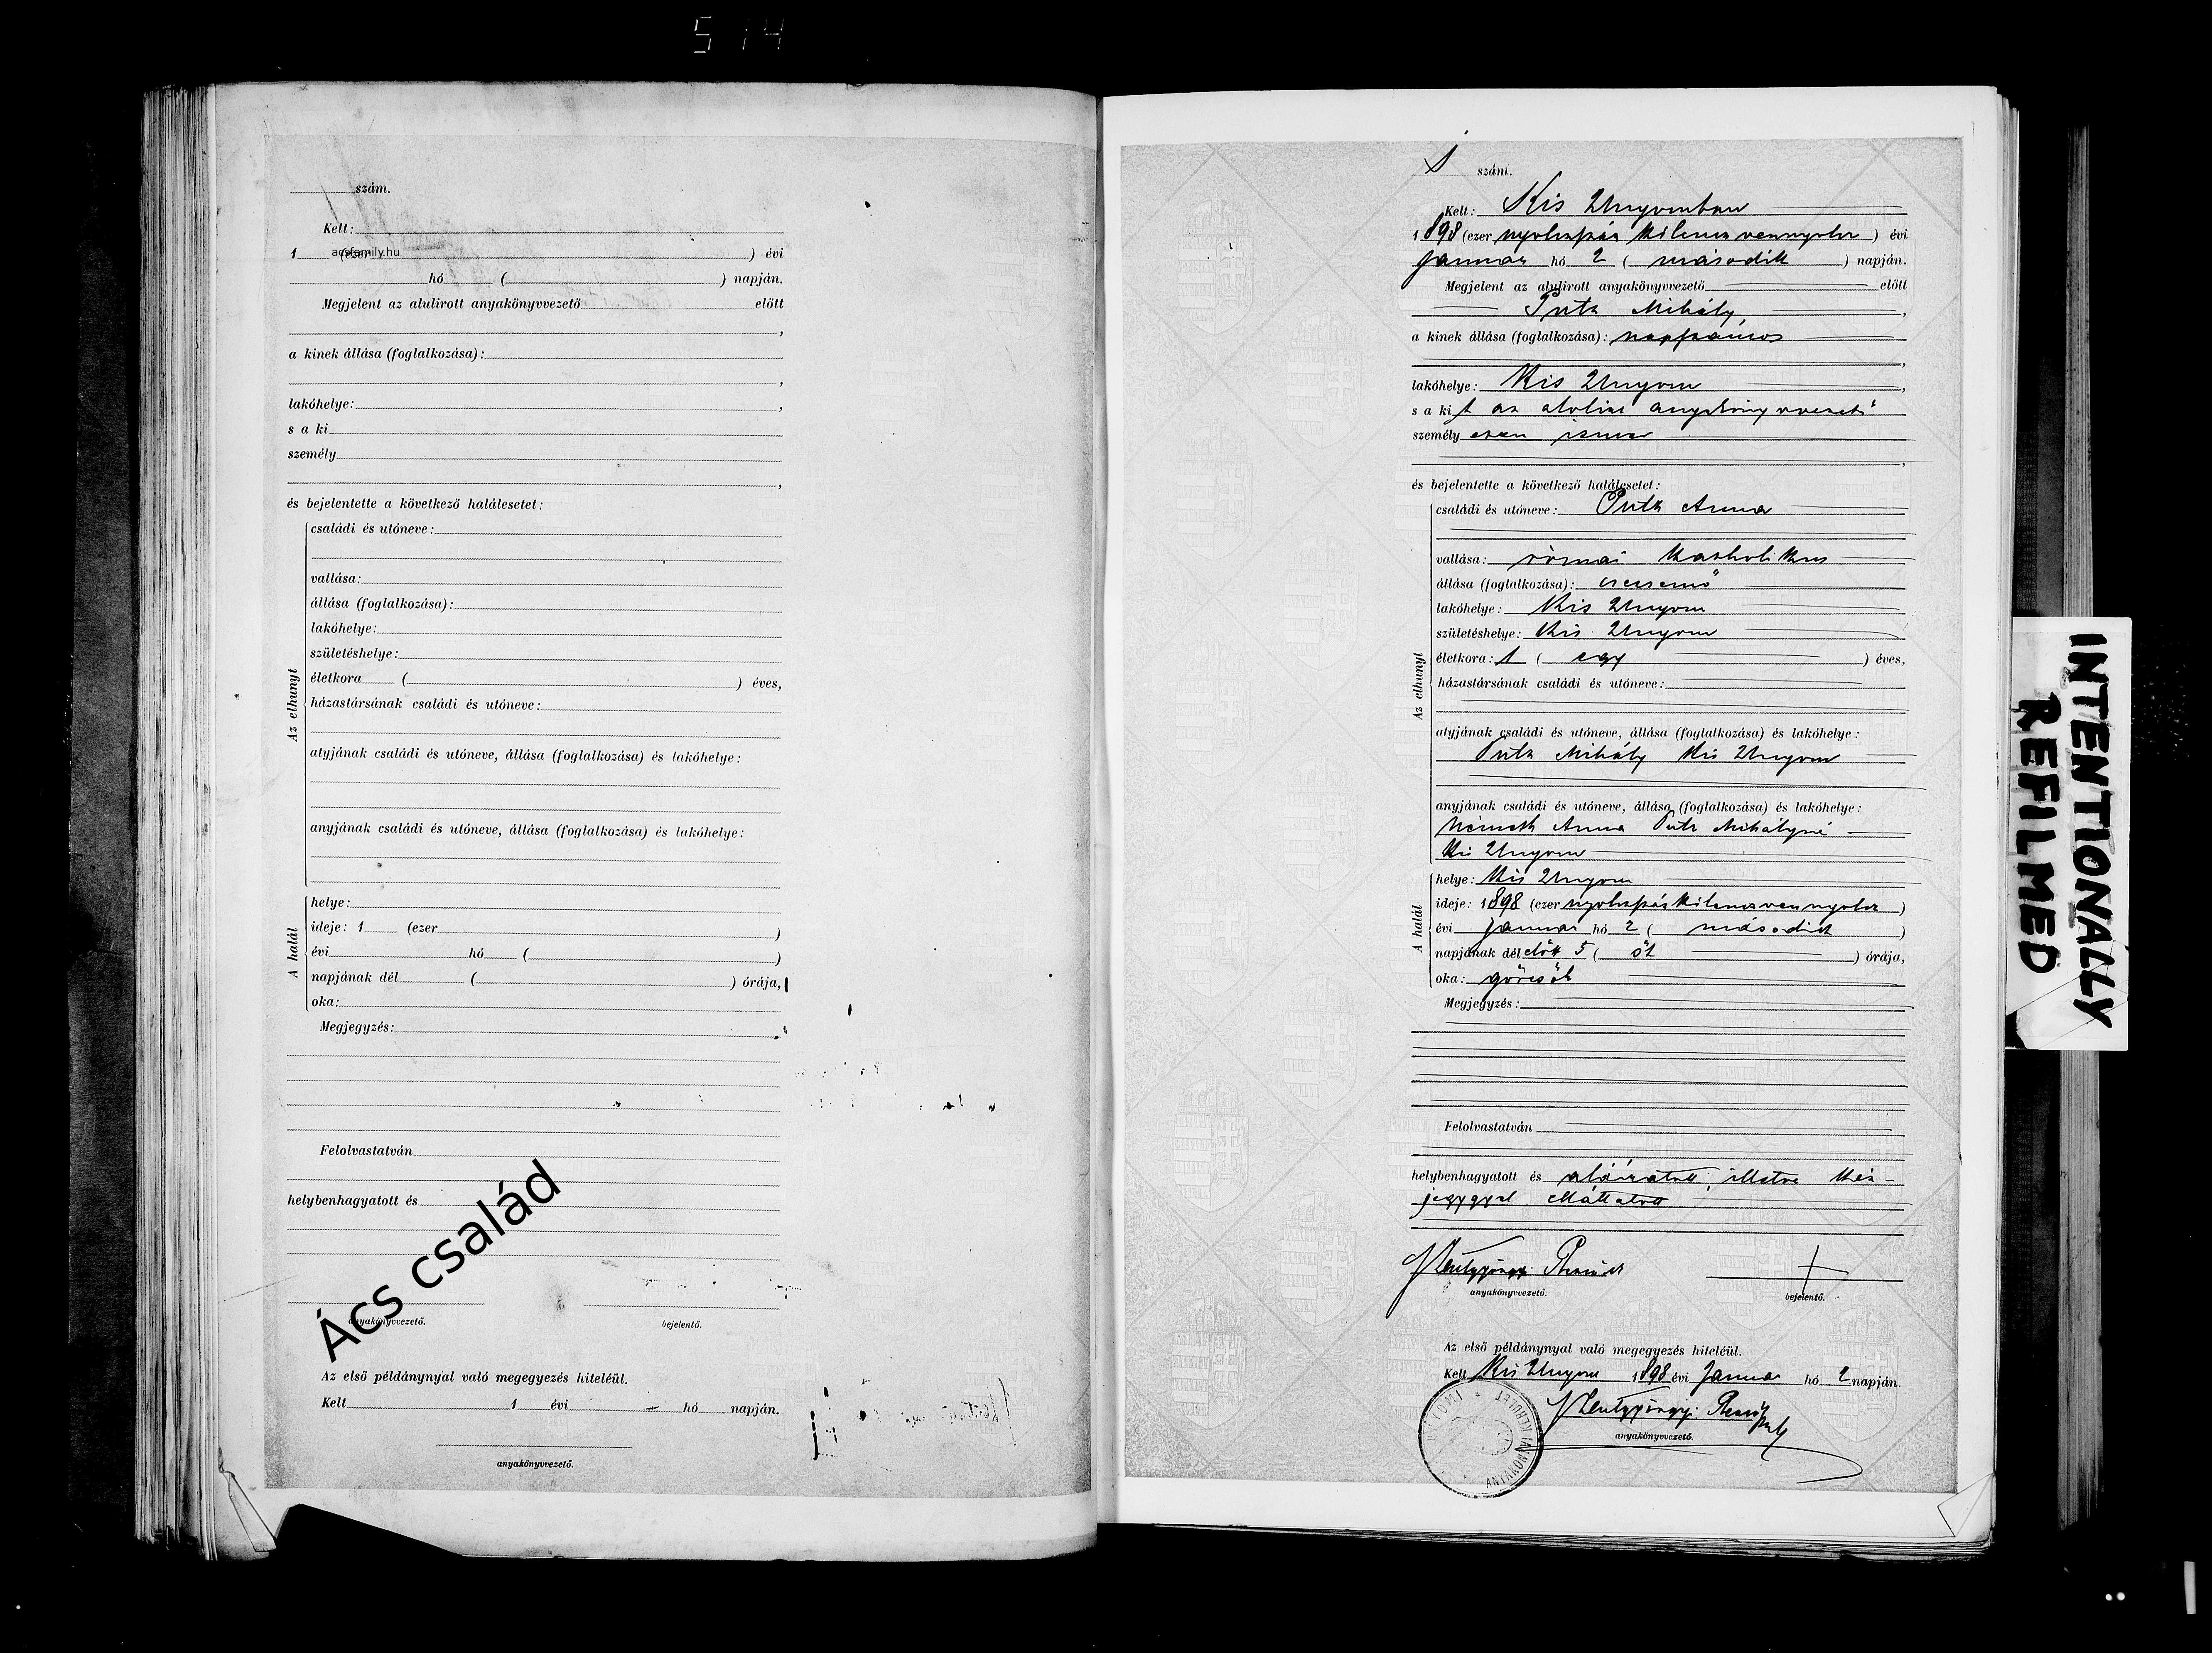 514
szám.
Kelt:
acsfamily.hu
1 (ezer ) évi
hó ( ) napján.
Megjelent az alulirott anyakönyvvezető előtt
,
a kinek állása (foglalkozása):
,
lakóhelye: ,
s a ki
személy
,
és bejelentette a következő halálesetet:
Az elhunyt
családi és utóneve:
vallása:
állása (foglalkozása):
lakóhelye:
születéshelye:
életkora ( ) éves,
házastársának családi és utóneve:
atyjának családi és utóneve, állása (foglalkozása) és lakóhelye:
anyjának családi és utóneve, állása (foglalkozása) és lakóhelye:
A halál
helye:
ideje: 1 (ezer )
évi hó ( )
napjának dél ( ) órája,
oka:
Megjegyzés:
Felolvastatván
helybenhagyatott és
Ács család
anyakönyvvezető. bejelentő.
Az első példánynyal való megegyezés hiteléül.
Kelt 1 évi hó napján.
anyakönyvvezető.
1 szám.
Kelt: Kis Unyomban
1898 (ezer nyolczszáz kilenczvennyolcz ) évi
Januar hó 2 ( második ) napján.
Megjelent az alulirott anyakönyvvezető előtt
Putz Mihály ,
a kinek állása (foglalkozása): napszámos
,
lakóhelye: Kis Unyom ,
s a kit az alolirt anyakönyvvezető
személyesen ismer
,
és bejelentette a következő halálesetet:
Az elhunyt
családi és utóneve: Putz Anna
vallása: római katholikus
állása (foglalkozása): csecsemő
lakóhelye: Kis Unyom
születéshelye: Kis Unyom
életkora: 1 ( egy ) éves,
házastársának családi és utóneve:
atyjának családi és utóneve, állása (foglalkozása) és lakóhelye:
Putz Mihály Kis Unyom
anyjának családi és utóneve, állása (foglalkozása) és lakóhelye:
Németh Anna Putz Mihályné
Kis Unyom
A halál
helye: Kis Unyom
ideje: 1898 (ezer nyolczszáz kilenczvennyolcz )
évi Januar hó 2 ( második )
napjának délelőtt 5 ( öt ) órája,
oka: görcsök
Megjegyzés:
Felolvastatván
helybenhagyatott és aláiratott, illetve kéz-
jegygyel elláttatott
Szentgyörgyi
anyakönyvvezető. bejelentő.
Az első példánynyal való megegyezés hiteléül.
Kelt Kis Unyom 1898 évi Januar hó 2 napján.
Szentgyörgyi
anyakönyvvezető.
ANYAKÖNYVI KERÜLET
INTENTIONALLY
REFILMED